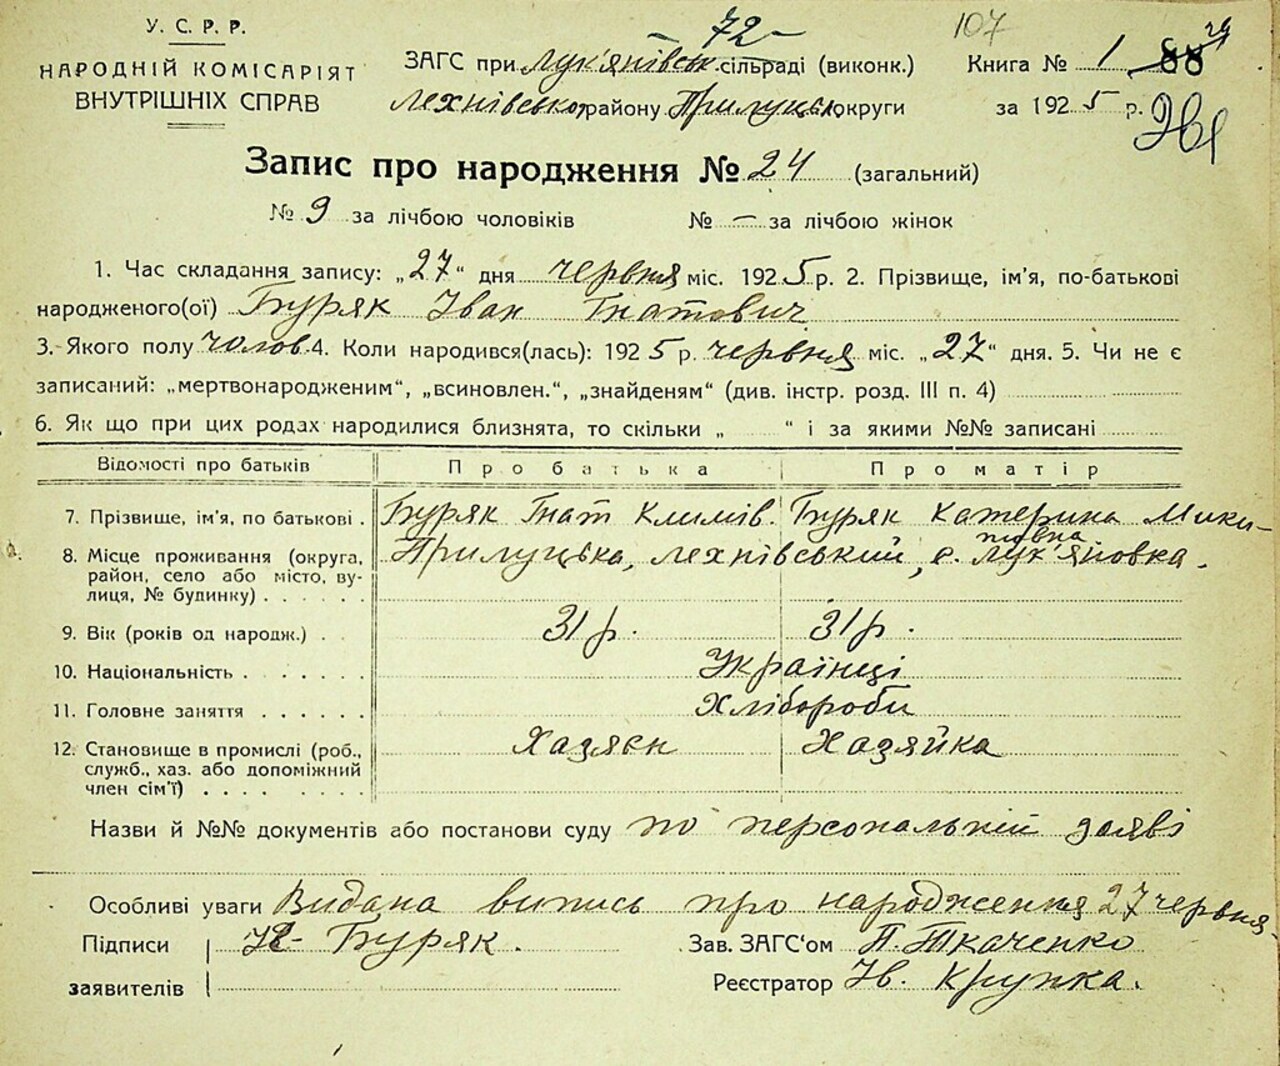 У. С. Р. Р.
НАРОДНІЙ КОМІСАРІЯТ
ВНУТРІШНІХ СПРАВ
72
107
ЗАГС при Лук'янівськ. сільраді (виконк.)
Книга № 1 88
Лехнівсько, району Прилуцько, округи
за 1925 р.
Запис про народження № 24 (загальний)
№ 9 за лічбою чоловіків № — за лічбою жінок
1. Час складання запису: „27“ дня червня міс. 1925 р. 2. Прізвище, ім'я, по-батькові
народженого(ої) Буряк Іван Гнатович
3. Якого полу чолов. 4. Коли народився(лась): 1925 р. червня міс. „27“ дня. 5. Чи не є
записаний: „мертвонародженим“, „всиновлен.“, „знайденям“ (див. інстр. розд. III п. 4)
6. Як що при цих родах народилися близнята, то скільки „ “ і за якими №№ записані
Відомості про батьків Про батька Про матір
7. Прізвище, ім'я, по батькові . Буряк Гнат Климів. Буряк Катерина Мики-
тівна
8. Місце проживання (округа, Прилуцька, Лехнівський, с. Лук'яновка.
район, село або місто, ву-
лиця, № будинку)
9. Вік (років од народж.) 31 р. 31 р.
10. Національність Українці
11. Головне заняття Хлібороби
12. Становище в промислі (роб., Хазяєн Хазяйка
служб., хаз. або допоміжний
член сім'ї)
Назви й №№ документів або постанови суду по персональній заяві
Особливі уваги Видана випись про народження 27 червня
Підписи Буряк. Зав. ЗАГС'ом П. Ткаченко
заявителів Реєстратор Ів. Крупка.